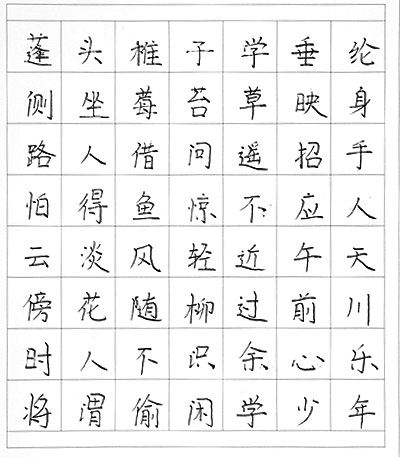 蓬头椎子学垂纶
侧坐莓苔草映身
路人借问遥招手
怕得鱼惊不应人
云淡风轻近午天
傍花随柳过前川
时人不识余心乐
将谓偷闲学少年